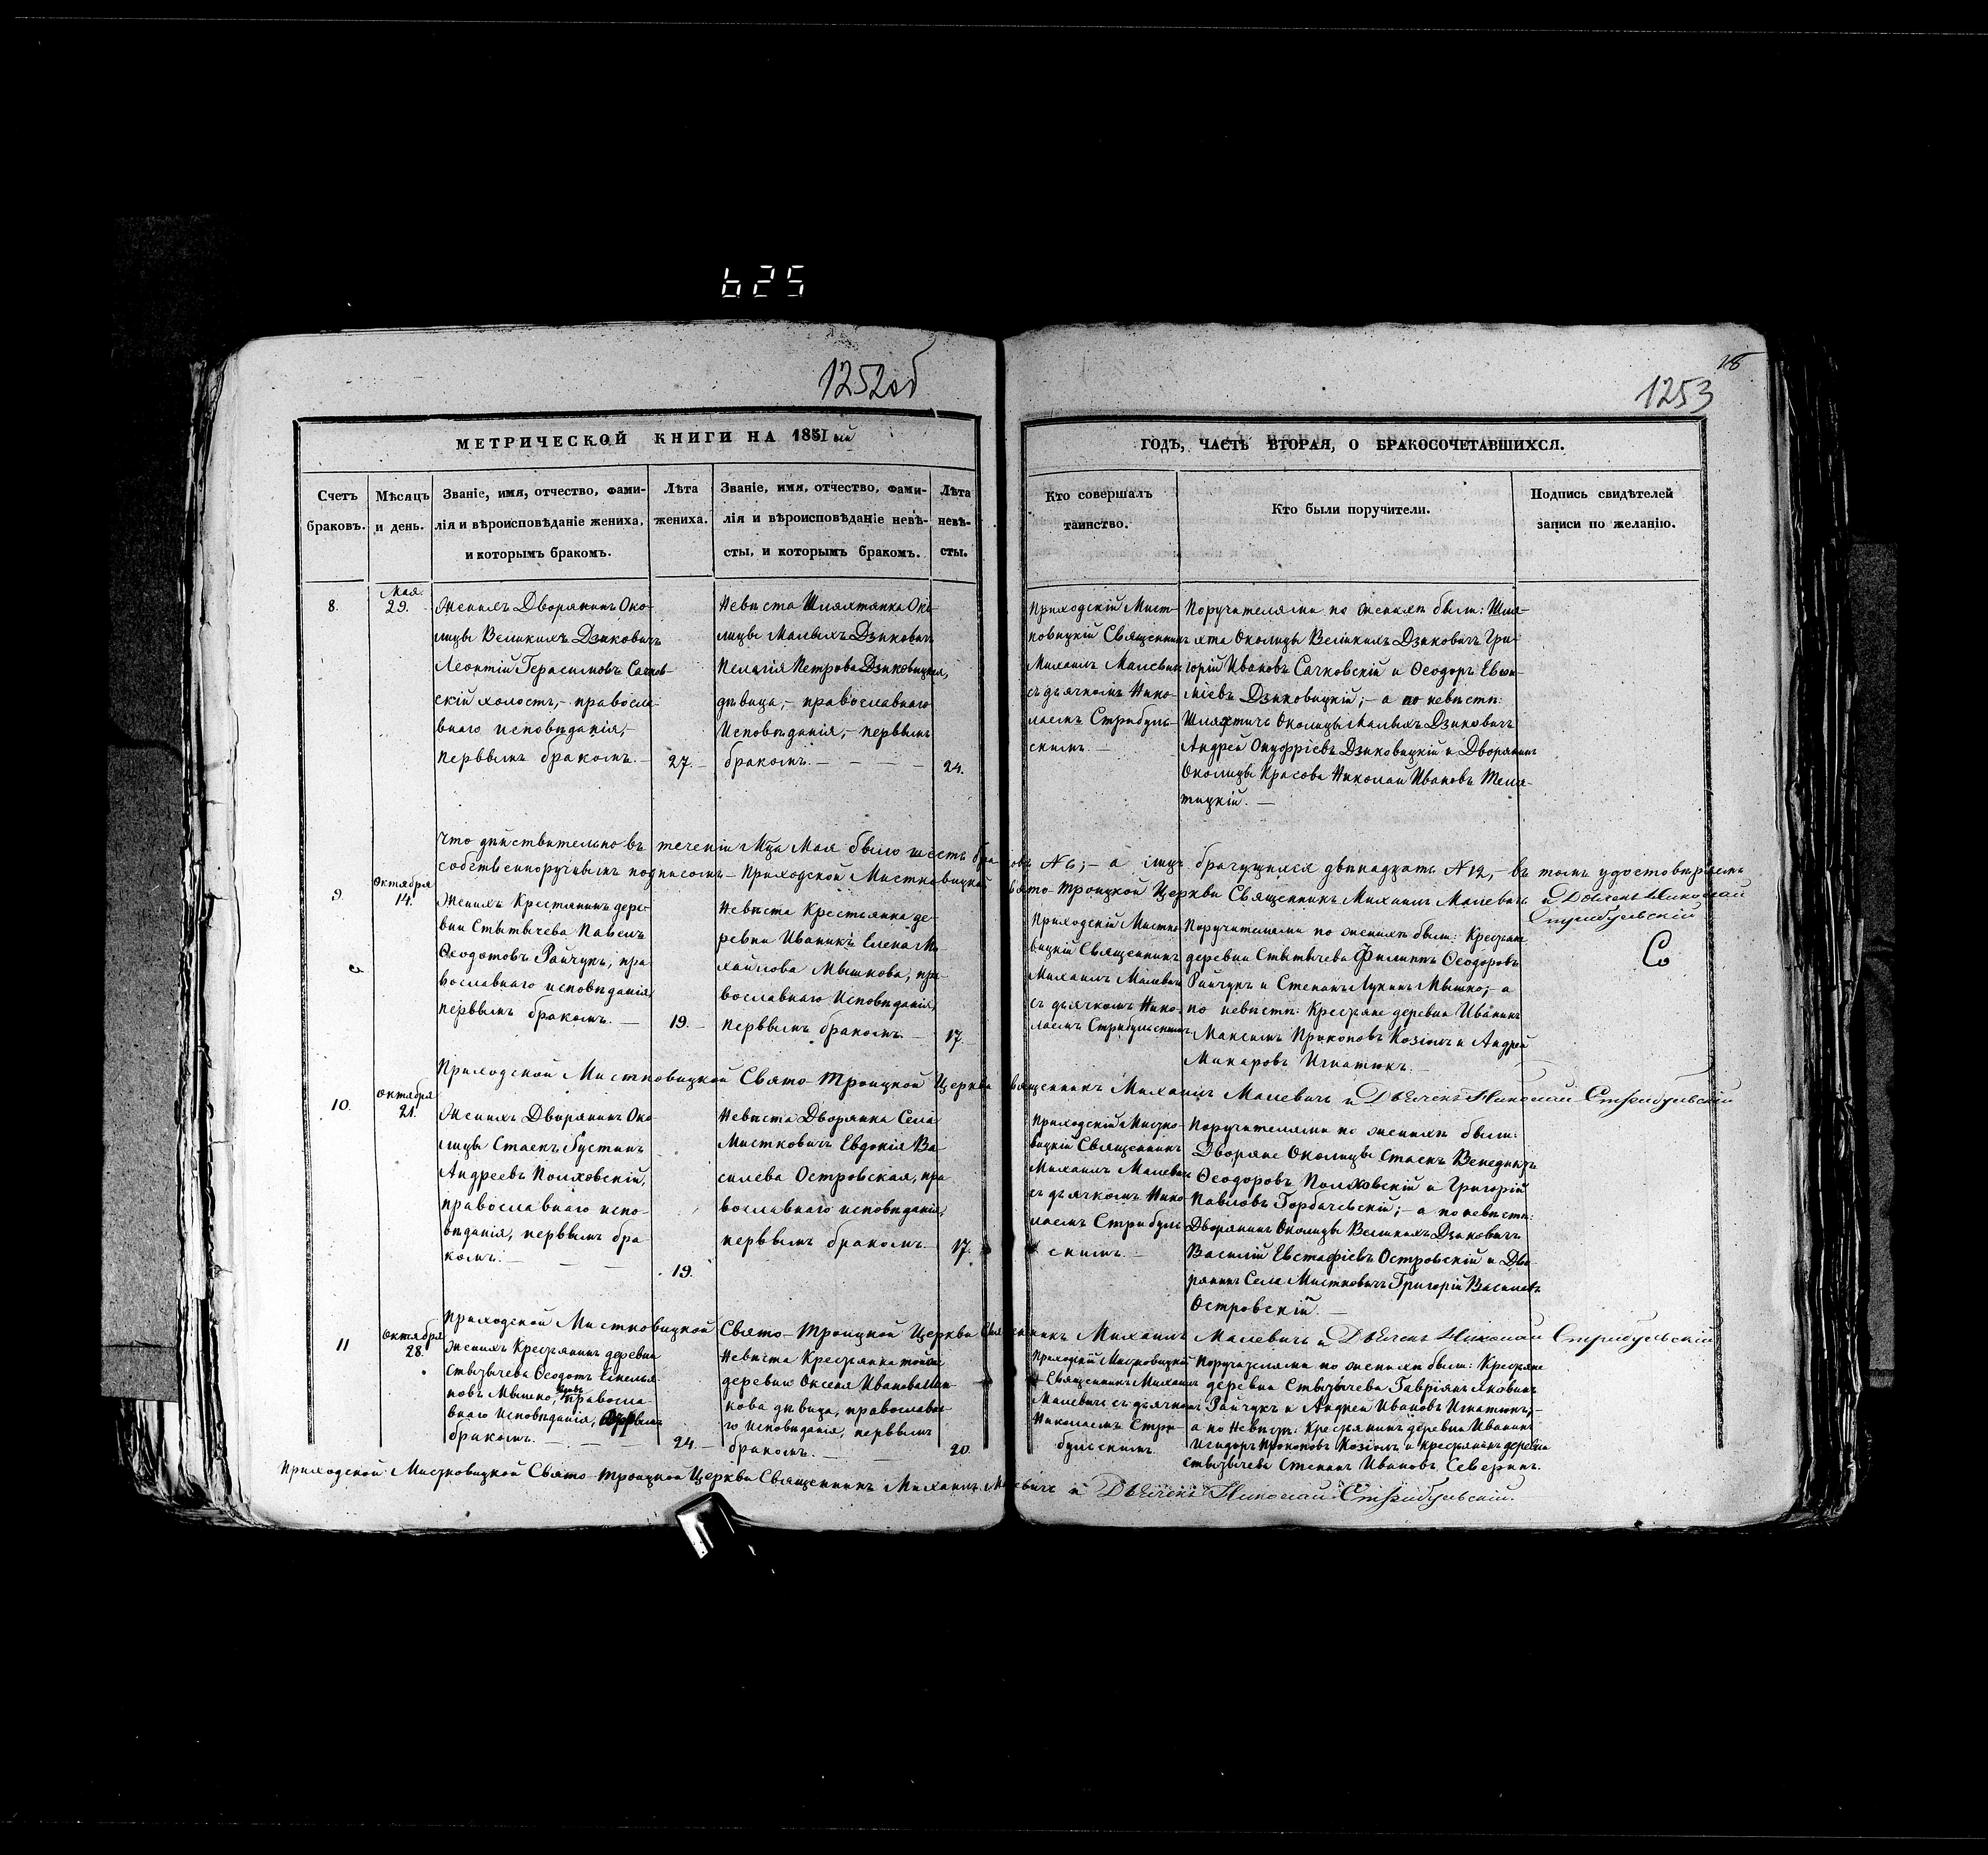 625
1252об
18
1253
МЕТРИЧЕСКОЙ КНИГИ НА 1851ый
ГОДЪ, ЧАСТЬ ВТОРАЯ, О БРАКОСОЧЕТАВШИХСЯ.
Счетъ
браковъ.
Мѣсяцъ
и день.
Званіе, имя, отчество, фами-
лія и вѣроисповѣданіе жениха,
и которымъ бракомъ.
Лѣта
жениха.
Званіе, имя, отчество, фами-
лія и вѣроисповѣданіе невѣ-
сты, и которымъ бракомъ.
Лѣта
невѣ-
сты.
Кто совершалъ
таинство.
Кто были поручители.
Подпись свидѣтелей
записи по желанію.
8.
Мая.
29.
Женихъ Дворянинъ Око-
лицы Великихъ Дзиковичъ
Леонтій Герасимовъ Сачков-
скій холостъ,- правосла-
внаго исповѣданія,-
первымъ бракомъ.-
27.-
Невѣста Шляхтянка Око-
лицы Малыхъ Дзиковичъ
Пелагія Петрова Дзиковицкая,
дѣвица,- православнаго
Исповѣданія,- первымъ
бракомъ.-
24.
Приходскій Мист-
ковицкій Священникъ
Михаилъ Малевичъ
съ дьячкомъ Нико-
лаемъ Стрибуль-
скимъ.-
Поручителями по женихѣ были: Шля-
хта Околицы Великихъ Дзиковичъ Гри-
горій Ивановъ Сачковскій и Ѳеодоръ Евфи-
міевъ Дзиковицкій;- а по невѣстѣ:
Шляхтичь Околицы Малыхъ Дзиковичъ
Андрей Онуфріевъ Дзиковицкій и Дворянинъ
Околицы Красова Николай Ивановъ Теля-
тицкій.-
Что дѣйствительно въ теченіи Мца Мая было шесть браковъ №6;- а лицъ брачущихся двѣнадцать №12,- въ томъ удостовѣряемъ
собственноручнымъ подписомъ- Приходской Мистковицкой Свято-Троицкой Церкви Священникъ Михаилъ Малевичь и Дьячекъ Николай
Стрибульскій
9
Октября
14.
Женихъ Крестянинъ дере-
вни Стытычева Павелъ
Ѳеодотовъ Райчукъ, пра-
вославнаго исповѣданія,
первымъ бракомъ.-
19.-
Невѣста Крестьянка де-
ревни Иваникъ Елена Ми-
хайлова Мышкова, пра-
вославнаго Исповѣданія,
первымъ бракомъ.-
17
Приходскій Мистко-
вицкій Священникъ
Михаилъ Малевичь
съ дьячкомъ Нико-
лаемъ Стрибульскимъ.
Поручителями по женихѣ были: Крестяне
деревни Стытычева Филипъ Ѳеодоровъ
Райчукъ и Степанъ Лукинъ Мышко;- а
по невѣстѣ: Крестяне деревни Иваникъ
Максимъ Прокоповъ Козіолъ и Андрей
Макаровъ Игнатюкъ.-
Приходской Мистковицкой Свято-Троицкой Церкви Священникъ Михаилъ Малевичь и Дьячекъ Николай Стрибульскій
10.
Октября
21.
Женихъ Дворянинъ Око-
лицы Стаекъ Густинъ
Андреевъ Полховскій,
православнаго испо-
вѣданія, первымъ бра-
комъ.-
19.
Невѣста Дворянка Села
Мистковичъ Евдокія Ва-
силева Островская, пра-
вославнаго исповѣданія,
первымъ бракомъ.-
17.
Приходскій Мистко-
вицкій Священникъ
Михаилъ Малевичь
съ дьячкомъ Нико-
лаемъ Стрибуль-
скимъ.-
Поручителями по женихѣ были:
Дворяне Околицы Стаекъ Венедиктъ
Ѳеодоровъ Полховскій и Григорій
Павловъ Горбачевскій;- а по невѣстѣ:
Дворянинъ Околицы Великихъ Дзиковичъ
Василій Евстафіевъ Островскій и Дво-
рянинъ Села Мистковичъ Григорій Василевъ
Островскій.-
Приходской Мистковицкой Свято-Троицкой Церкви Священникъ Михаилъ Малевичь и Дьячекъ Николай Стрибульскій
11
Октября
28.
Женихъ Крестянинъ деревни
Стытычева Ѳеодотъ Емелья-
новъ Мышко, православ-
внаго Исповѣданія,
бракомъ.-
24.-
Невѣста Крестянка тойже
деревни Оксеня Иванова
кова дѣвица, православна-
го исповѣданія, первымъ
бракомъ.-
20
Приходскій Мистковицкій
Священникъ Михаилъ
Малевичь съ дьячкомъ
Николаемъ Стри-
бульскимъ
Поручителями по женихѣ были: Крестяне
деревни Стытычева Гавріилъ Яковинъ
Райчукъ и Андрей Ивановъ Игнатюкъ;-
а по Невѣстѣ: Крестянинъ деревни Иваникъ
Исидоръ Прокоповъ Козіолъ и крестянинъ деревни
Стытычева Степанъ Ивановъ Северинъ.
Приходской Мистковицкой Свято-Троицкой Церкви Священникъ Михаилъ Малевичь и Дьячекъ Николай Стрибульскій.